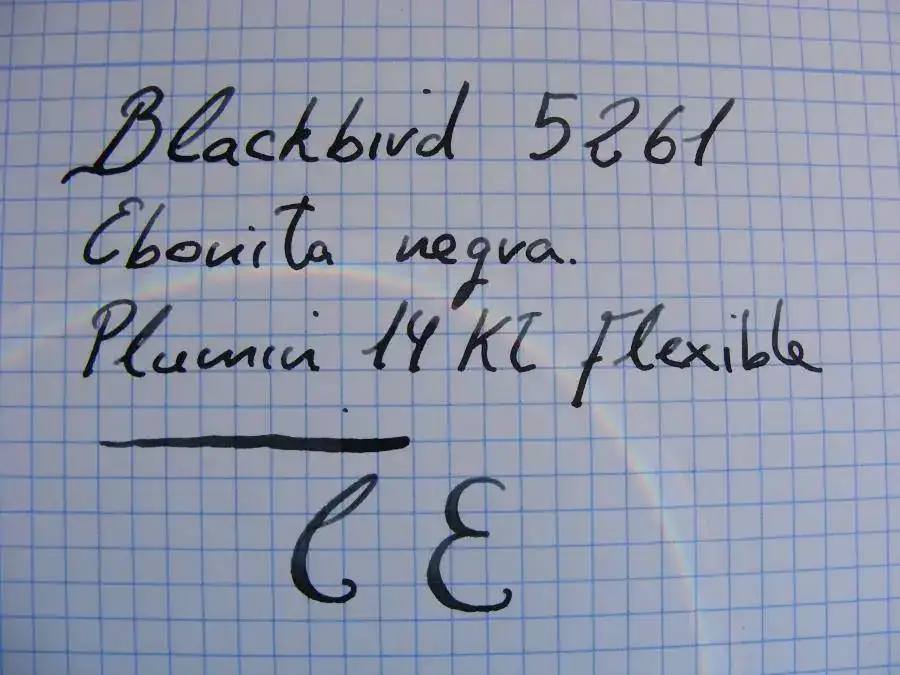 Blackbird 5261
Ebonita negra.
Plumin 14 Kt flexible
l E